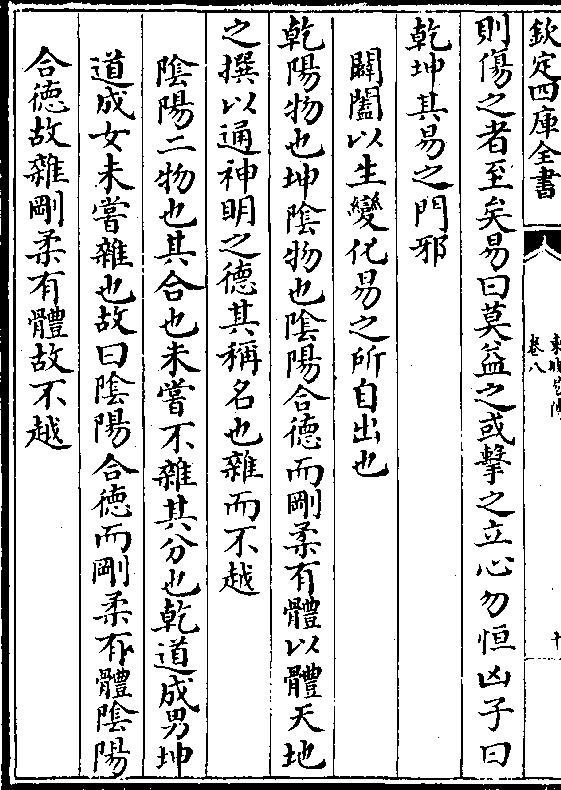 欽定四庫全書
卷八
則傷之者至矣易曰莫益之或擊之立心勿恒凶子曰
乾坤其易之門邪
闢闔以生變化易之所自出也
乾陽物也坤陰物也陰陽合德而剛柔有體以體天地
之撰以通神明之德其稱名也雜而不越
陰陽二物也其合也未嘗不雜其分也乾道成男坤
道成女未嘗雜也故曰陰陽合德而剛柔有體陰陽
合徳故雜剛柔有體故不越